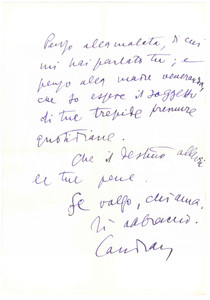 Penso alla malata, di cui
mi hai parlato tu; e
penso alla madre veneranda,
che so essere il soggetto
di tue trepide premure
quotidiane.
Che il destino allevi
le tue pene.
Se valgo, chiama.
Ti abbraccio.